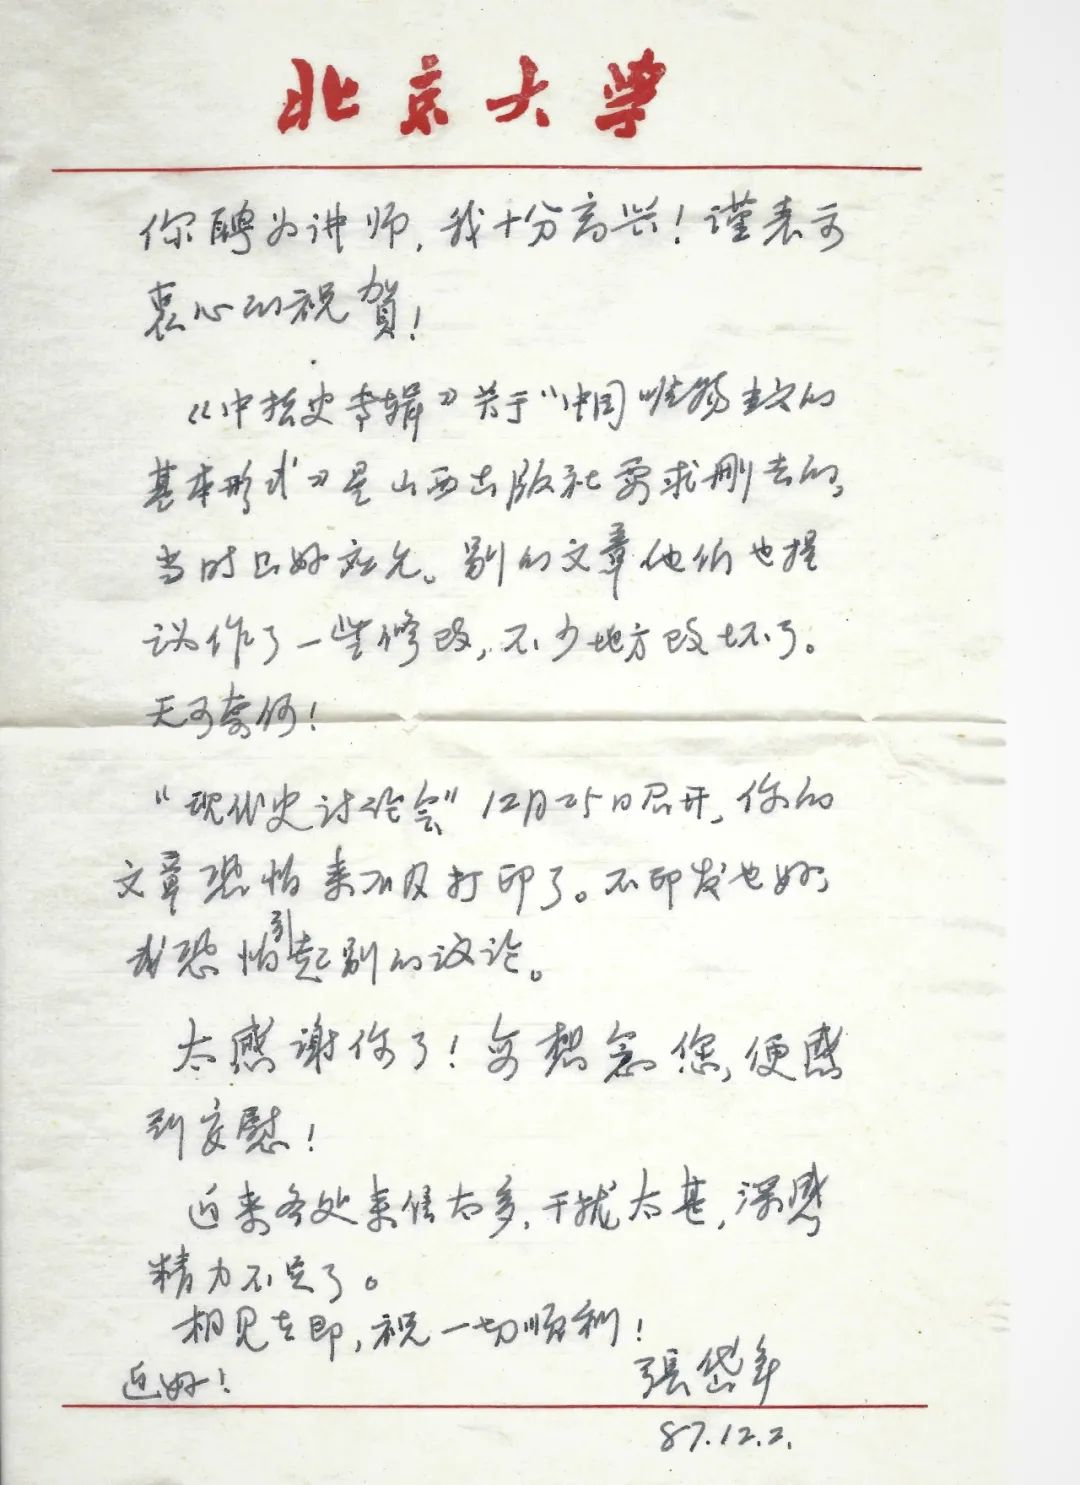 北京大学
你聘为讲师，我十分高兴！谨表示
衷心的祝賀！
《中哲史专辑》关于“中国唯物主义的
基本形式”》是山西出版社要求删去的，
当时只好应允。别的文章他们也提
议作了一些修改，不少地方改坏了。
无可奈何！
“现代史讨论会”12月25日召开，你的
文章恐怕来不及打印了。不印发也好，
我恐怕引起别的议论。
太感谢你了！每想念您，便感
到安慰！
近来各处来信太多，干扰太甚，深感
精力不足了。
相见在即，祝一切顺利！
近好！
張岱年
87.12.2.